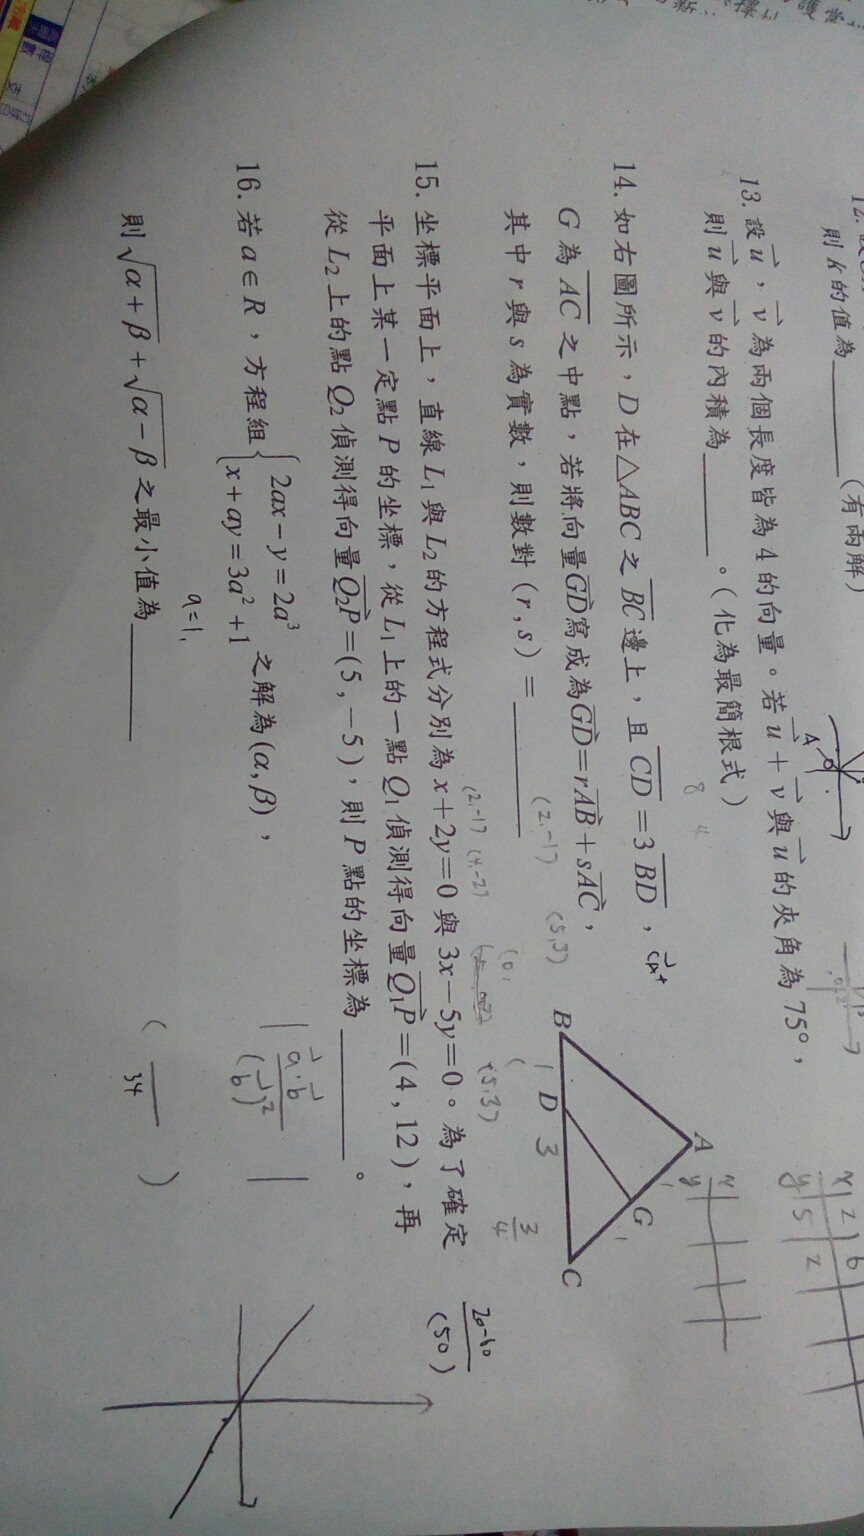 則 k 的值為______(有兩解)
13. 設 u⃗，v⃗ 為兩個長度皆為 4 的向量。若 u⃗ + v⃗ 與 u⃗ 的夾角為 75°，
則 u⃗ 與 v⃗ 的內積為______。(化為最簡根式)
14. 如右圖所示，D 在 △ABC 之 BC 邊上，且 CD = 3 BD，
G 為 AC 之中點，若將向量 GD 寫成為 GD = rAB + sAC，
其中 r 與 s 為實數，則數對 (r , s) = ______
A
B
D
G
C
1
3
(2,-1)
(5,3)
3/4
(2,-1) (4,-2)
(5,3)
15. 坐標平面上，直線 L₁ 與 L₂ 的方程式分別為 x + 2y = 0 與 3x − 5y = 0。為了確定
平面上某一定點 P 的坐標，從 L₁ 上的一點 Q₁ 偵測得向量 Q₁P = (4 , 12)，再
從 L₂ 上的點 Q₂ 偵測得向量 Q₂P = (5 , −5)，則 P 點的坐標為______。
20-60
(50)
16. 若 a ∈ R，方程組 { 2ax − y = 2a³
x + ay = 3a² + 1 之解為 (α, β)，
a=1,
則 √(α + β) + √(α − β) 之最小值為______
a⃗·b⃗
(b⃗)²
34